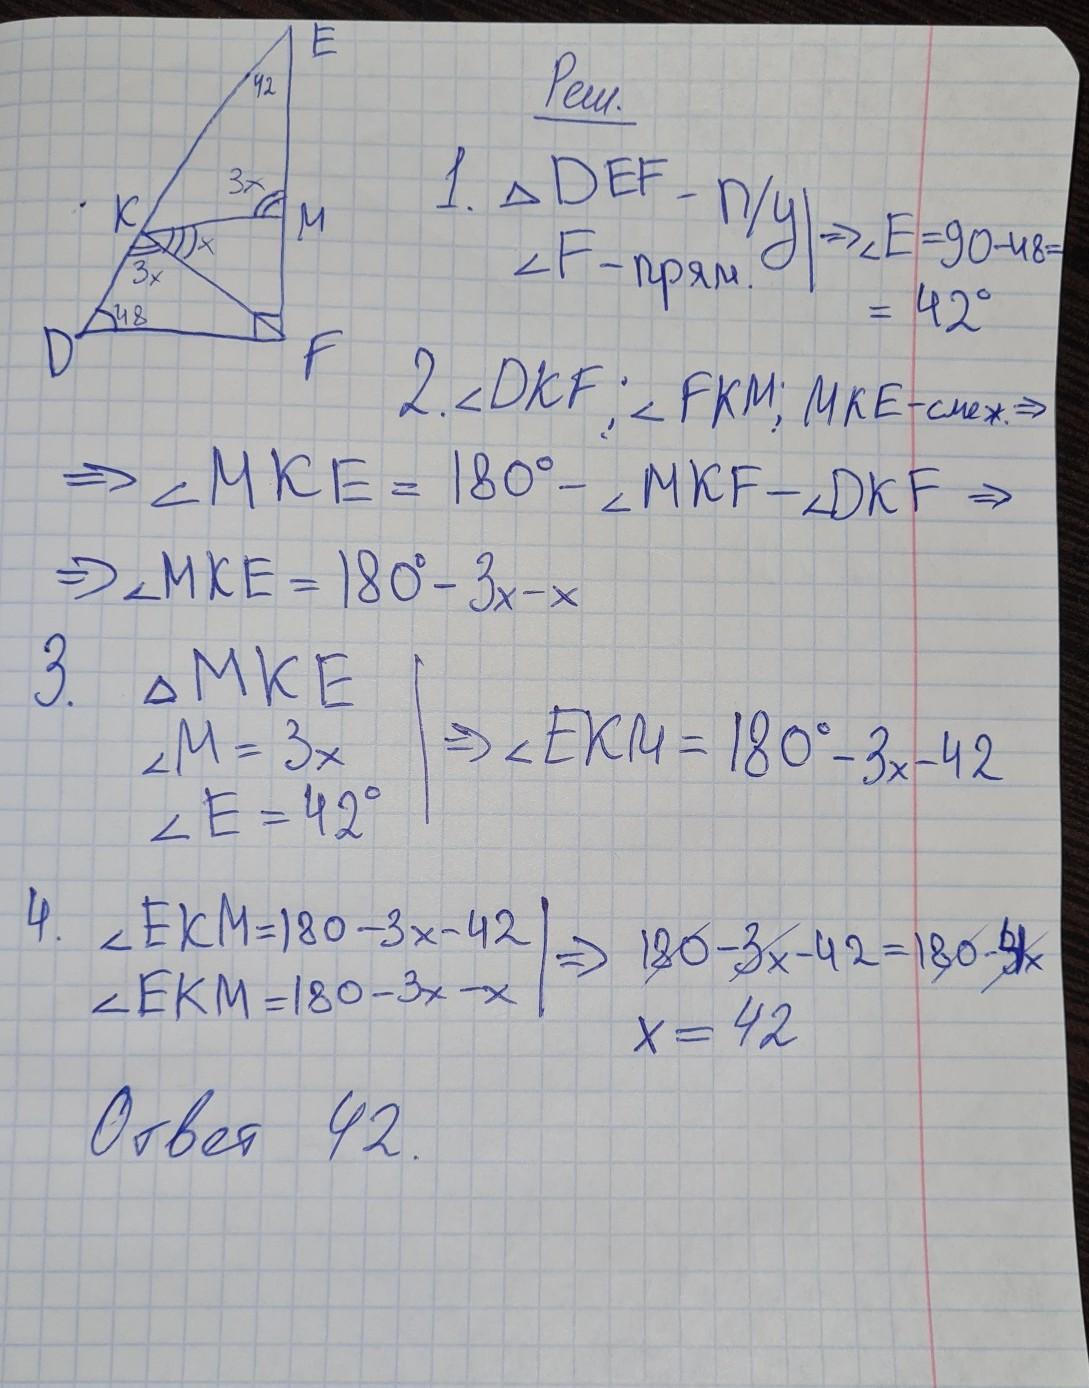 E
42
Реш.
1. △DEF - п/у
∠F - прям.
⇒ ∠E = 90-48=
= 42°
3x
K
M
x
3x
48
D
F
2. ∠DKF; ∠FKM; MKE - смеж. ⇒
⇒ ∠MKE = 180° - ∠MKF - ∠DKF ⇒
⇒ ∠MKE = 180° - 3x - x
3. △MKE
∠M = 3x
∠E = 42°
⇒ ∠EKM = 180° - 3x - 42
4. ∠EKM = 180 - 3x - 42
∠EKM = 180 - 3x - x
⇒ 180 - 3x - 42 = 180 - 4x
x = 42
Ответ 42.